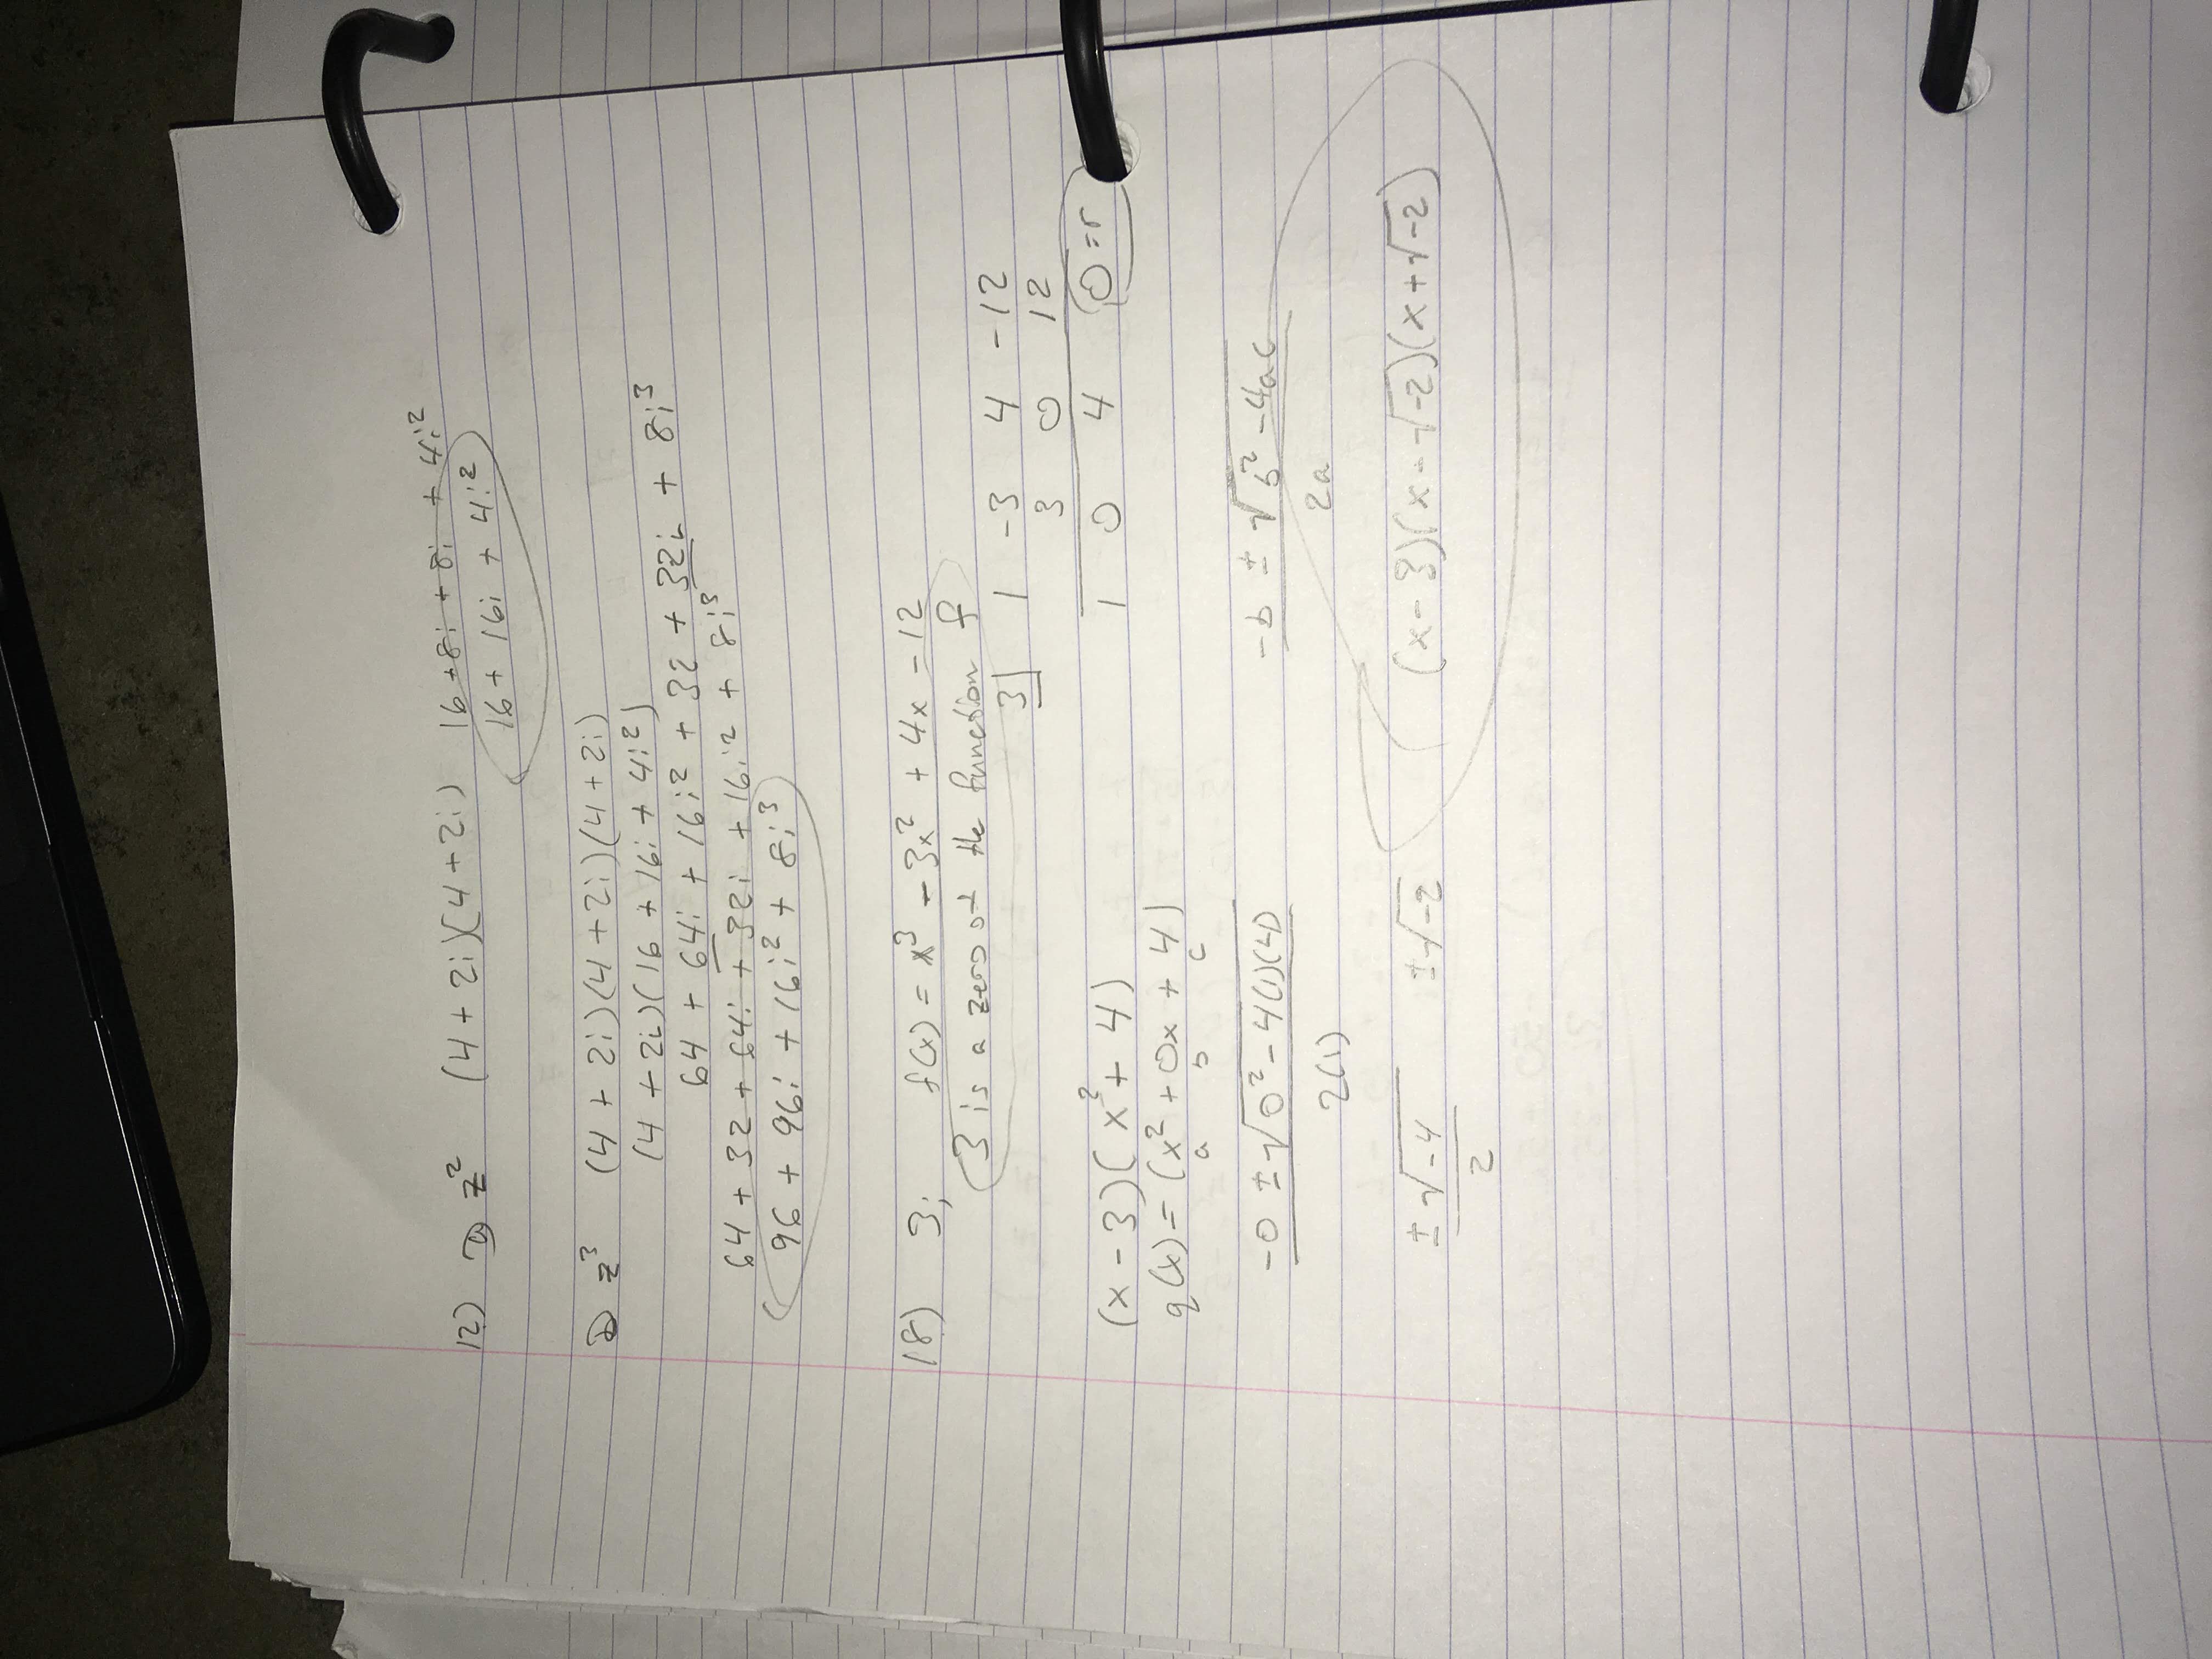 12) a) z² (4 + 2i)(4 + 2i) 16 + 8i + 8i + 4i²
16 + 16i + 4i²
b) z³ (4 + 2i)(4 + 2i)(4 + 2i)
(4 + 2i)(16 + 16i + 4i²)
64 + 64i + 16i² + 32 + 32i + 8i³
64 + 32 + 64i + 32i + 16i² + 8i³
96 + 96i + 16i² + 8i³
18) 3; f(x) = x³ - 3x² + 4x - 12
3 is a zero of the function f
3| 1 -3 4 -12
3 0 12
1 0 4 0 = r
(x - 3)(x² + 4)
q(x) = (x² + 0x + 4)
a b c
-0 ± √0² - 4(1)(4) -b ± √b² - 4ac
2(1) 2a
± √-4 ± √-2 (x - 3)(x - √-2)(x + √-2)
2